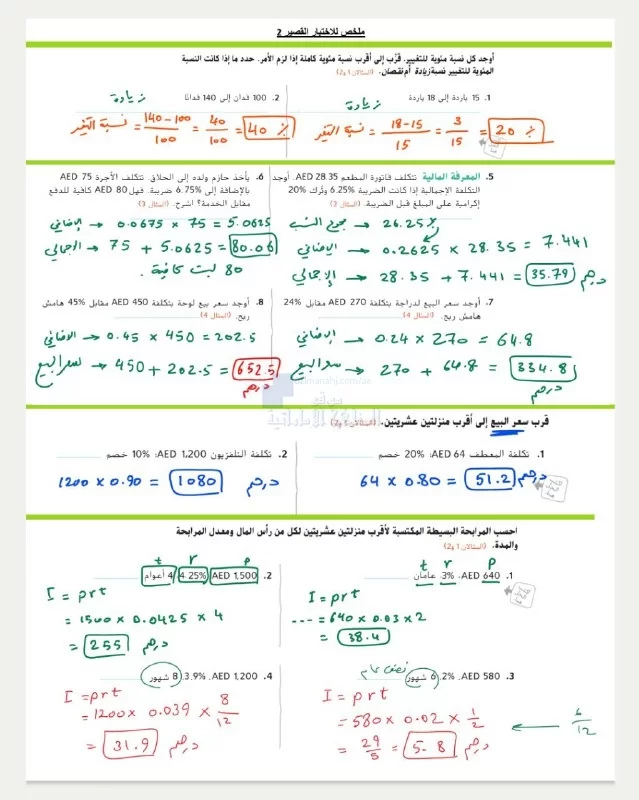 ملخص للاختبار القصير 2
أوجد كل نسبة مئوية للتغيير. قرّب إلى أقرب نسبة مئوية كاملة إذا لزم الأمر. حدد ما إذا كانت النسبة
المئوية للتغيير نسبة زيادة أم نقصان. (المثالان 1 و2)
1. 15 ياردة إلى 18 ياردة
زيادة
نسبة التغير = 18-15 / 15 = 3 / 15 = 20 %
2. 100 فدان إلى 140 فدانًا
زيادة
نسبة التغير = 140-100 / 100 = 40 / 100 = 40 %
5. المعرفة المالية تتكلف فاتورة المطعم AED 28.35. أوجد
التكلفة الإجمالية إذا كانت الضريبة 6.25% وتُرك 20%
إكرامية على المبلغ قبل الضريبة. (المثال 3)
26.25% ← مجموع النسب
الإضافي → 0.2625 x 28.35 = 7.441
الإجمالي → 28.35 + 7.441 = 35.79 درهم
6. يأخذ حازم ولده إلى الحلاق. تتكلف الأجرة AED 75
بالإضافة إلى 6.75% ضريبة. فهل AED 80 كافية للدفع
مقابل الخدمة؟ اشرح. (المثال 3)
الإضافي → 0.0675 x 75 = 5.0625
الإجمالي → 75 + 5.0625 = 80.06
80 ليست كافية.
7. أوجد سعر البيع لدراجة بتكلفة AED 270 مقابل 24%
هامش ربح. (المثال 4)
الإضافي → 0.24 x 270 = 64.8
سعر البيع → 270 + 64.8 = 334.8
درهم
8. أوجد سعر بيع لوحة بتكلفة AED 450 مقابل 45% هامش
ربح. (المثال 4)
الإضافي → 0.45 x 450 = 202.5
سعر البيع → 450 + 202.5 = 652.5
درهم
almanahj.com/ae
موقع
المناهج الإماراتية
قرب سعر البيع إلى أقرب منزلتين عشريتين. (المثالان 1 و2)
1. تكلفة المعطف AED 64؛ 20% خصم
64 x 0.80 = 51.2 درهم
2. تكلفة التلفزيون AED 1,200؛ 10% خصم
1200 x 0.90 = 1080 درهم
احسب المرابحة البسيطة المكتسبة لأقرب منزلتين عشريتين لكل من رأس المال ومعدل المرابحة
والمدة. (المثالان 1 و2)
t r p
1. AED 640، 3%، عامان
I = prt
--- = 640 x 0.03 x 2
= 38.4
t r p
2. AED 1,500، 4.25%، 4 أعوام
I = prt
= 1500 x 0.0425 x 4
= 255 درهم
نصف عام
3. AED 580، 2%، 6 شهور
I = prt
= 580 x 0.02 x 1/2 ← 6/12
= 29/5 = 5.8 درهم
4. AED 1,200، 3.9%، 8 شهور
I = prt
= 1200 x 0.039 x 8/12
= 31.9 درهم